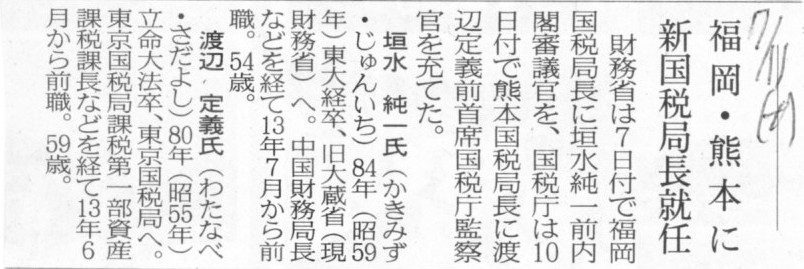 7/11
福岡・熊本に
新国税局長就任
財務省は7日付で福岡
国税局長に垣水純一前内
閣審議官を、国税庁は10
日付で熊本国税局長に渡
辺定義前首席国税庁監察
官を充てた。
垣水　純一氏（かきみず
・じゅんいち）84年（昭59
年）東大経卒、旧大蔵省（現
財務省）へ。中国財務局長
などを経て13年7月から前
職。54歳。
渡辺　定義氏（わたなべ
・さだよし）80年（昭55年）
立命大法卒、東京国税局へ。
東京国税局課税第一部資産
課税課長などを経て13年6
月から前職。59歳。